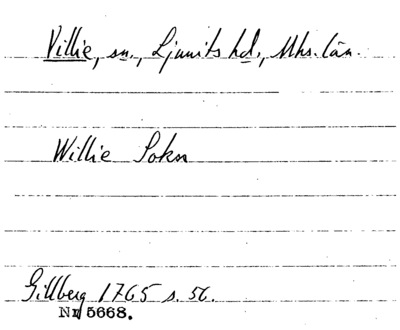 Villie, sn., Ljunits hd., Mhs. län.
Willie Sokn
Gillberg 1765 s. 56.
Nr 5668.